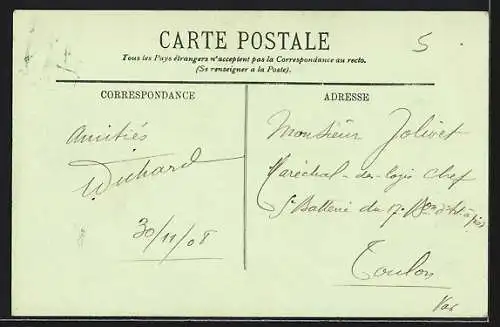 CARTE POSTALE
Tous les Pays étrangers n'acceptent pas la Correspondance au recto.
(Se renseigner a la Poste).
5
CORRESPONDANCE
Amitiés
30/11/08
ADRESSE
Monsieur Jolivet
Maréchal-des-logis chef
5e Batterie du 17e Bon d'Art à pied
Toulon
Var